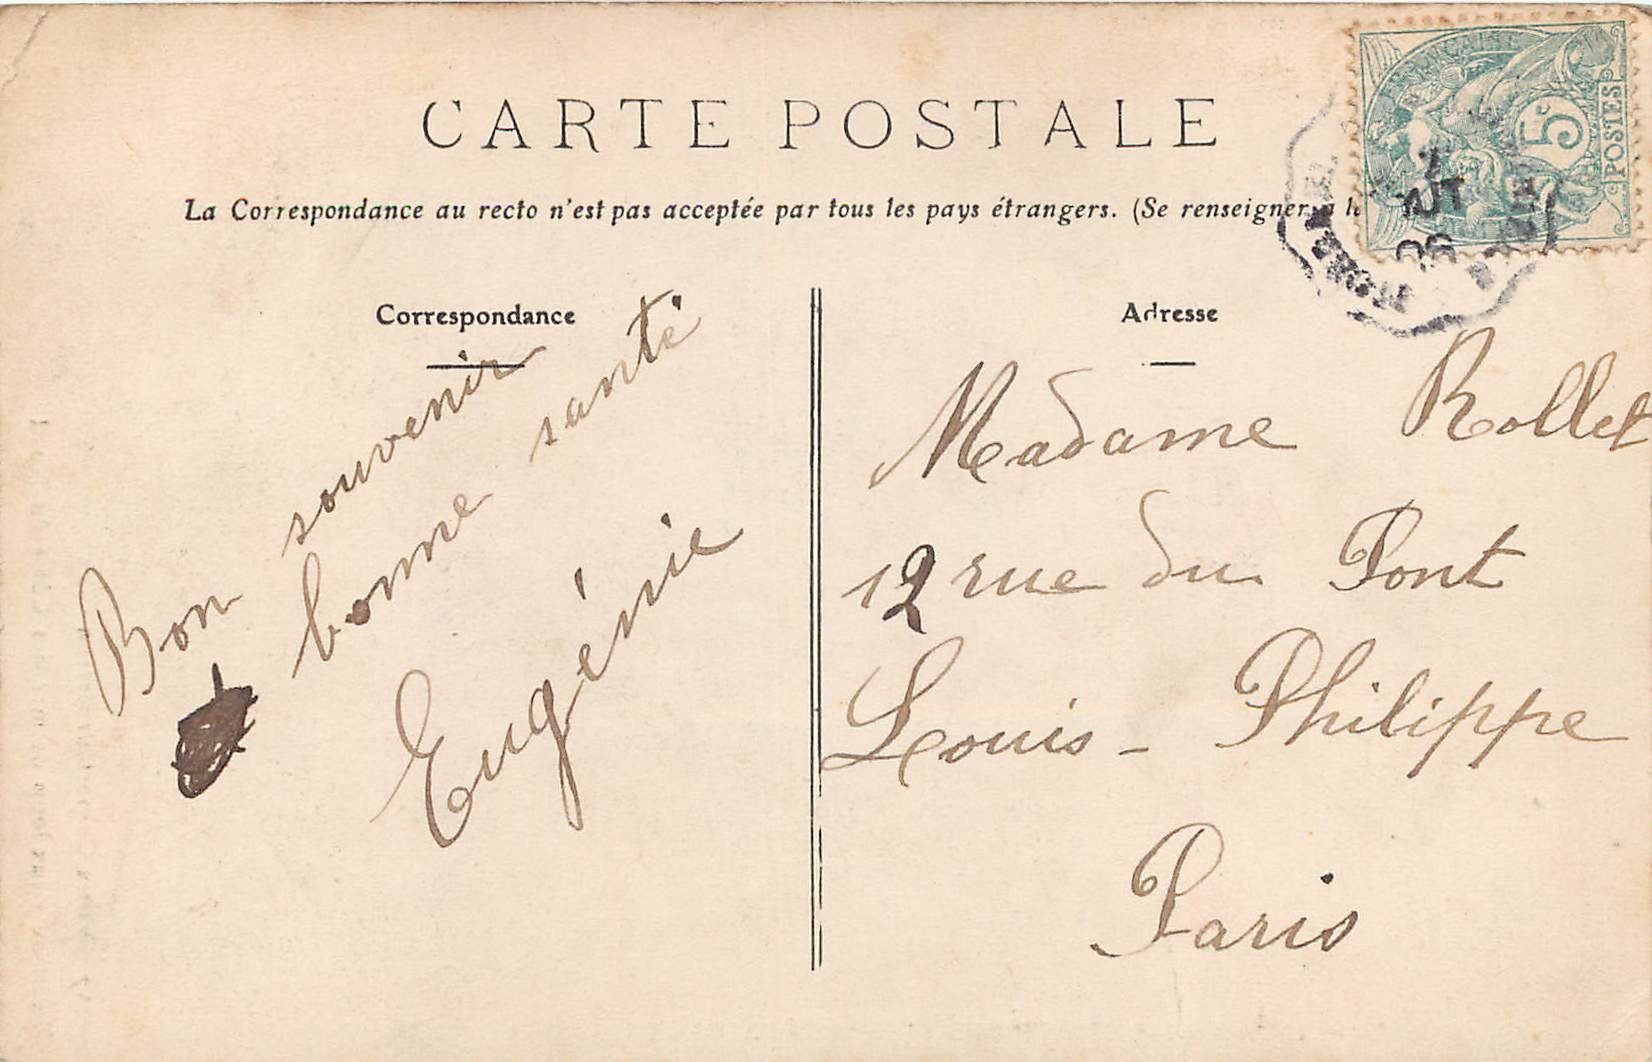 CARTE POSTALE
La Correspondance au recto n'est pas acceptée par tous les pays étrangers. (Se renseigner à
Correspondance
Bon souvenir
bonne santé
Eugénie
Adresse
Madame Rollet
12 rue du Pont
Louis-Philippe
Paris
5c
POSTES
AOUT
06